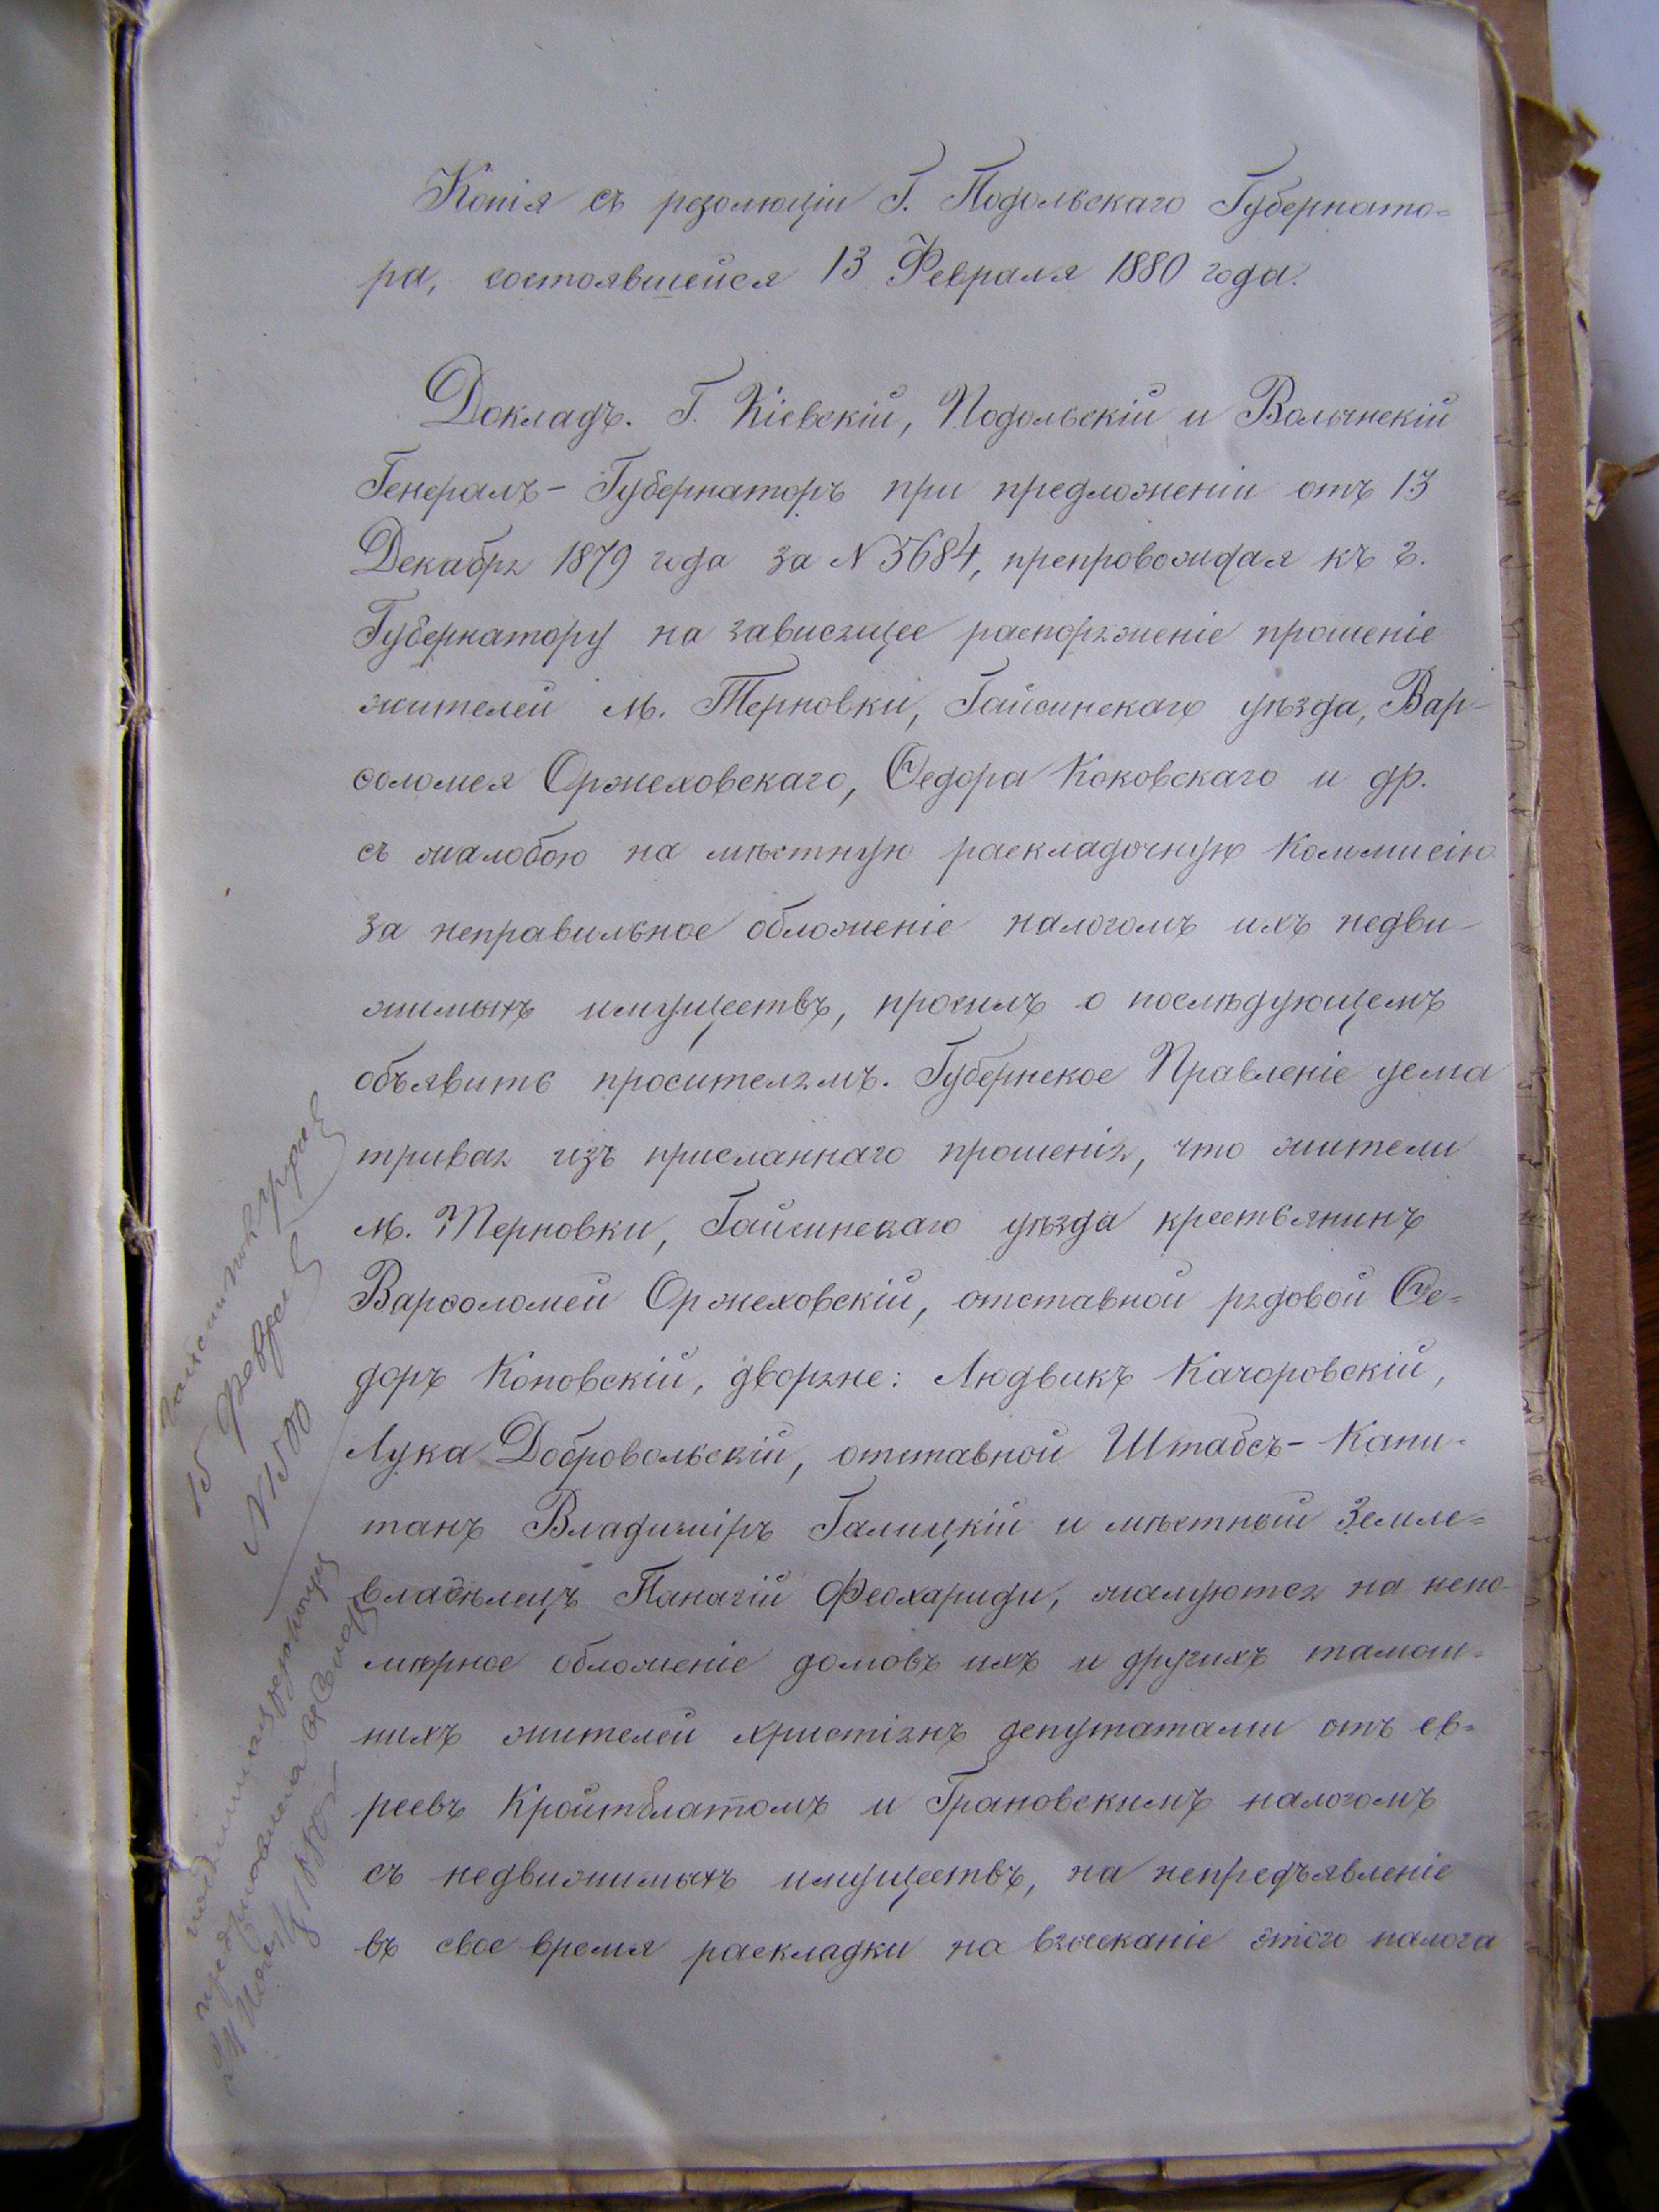 Копія съ резолюціи Г. Подольскаго Губернато=
ра, состоявшейся 13 Февраля 1880 года.
Докладъ. Г. Кіевскій, Подольскій и Волынскій
Генералъ-Губернаторъ при предложеніи отъ 13
Декабря 1879 года за N 5684, препровождая къ г.
Губернатору на зависящее распоряженіе прошеніе
жителей м. Терновки, Гайсинскаго уѣзда, Вар-
ѳоломея Оржеховскаго, Ѳедора Коковскаго и др.
съ жалобою на мѣстную раскладочную Коммисію
за неправильное обложеніе налогомъ ихъ недви-
жимыхъ имуществъ, просилъ о послѣдующемъ
объявить просителямъ. Губернское Правленіе усма
тривая изъ присланнаго прошенія, что жители
м. Терновки, Гайсинскаго уѣзда крестьянинъ
Варѳоломей Оржеховскій, отставной рядовой Ѳе=
доръ Коковскій, дворяне: Людвикъ Качоровскій,
Лука Добровольскій, отставной Штабсъ-Капи-
танъ Владиміръ Галицкій и мѣстный Земле=
владѣлецъ Панагій Феохариди, жалуются на непо-
мѣрное обложеніе домовъ ихъ и другихъ тамош-
нихъ жителей христіянъ депутатами отъ ев=
реевъ Кройтблатомъ и Грановскимъ налогомъ
съ недвижимыхъ имуществъ, на непредъявленіе
въ свое время раскладки на взысканіе этого налога
15 Февра
N 1500